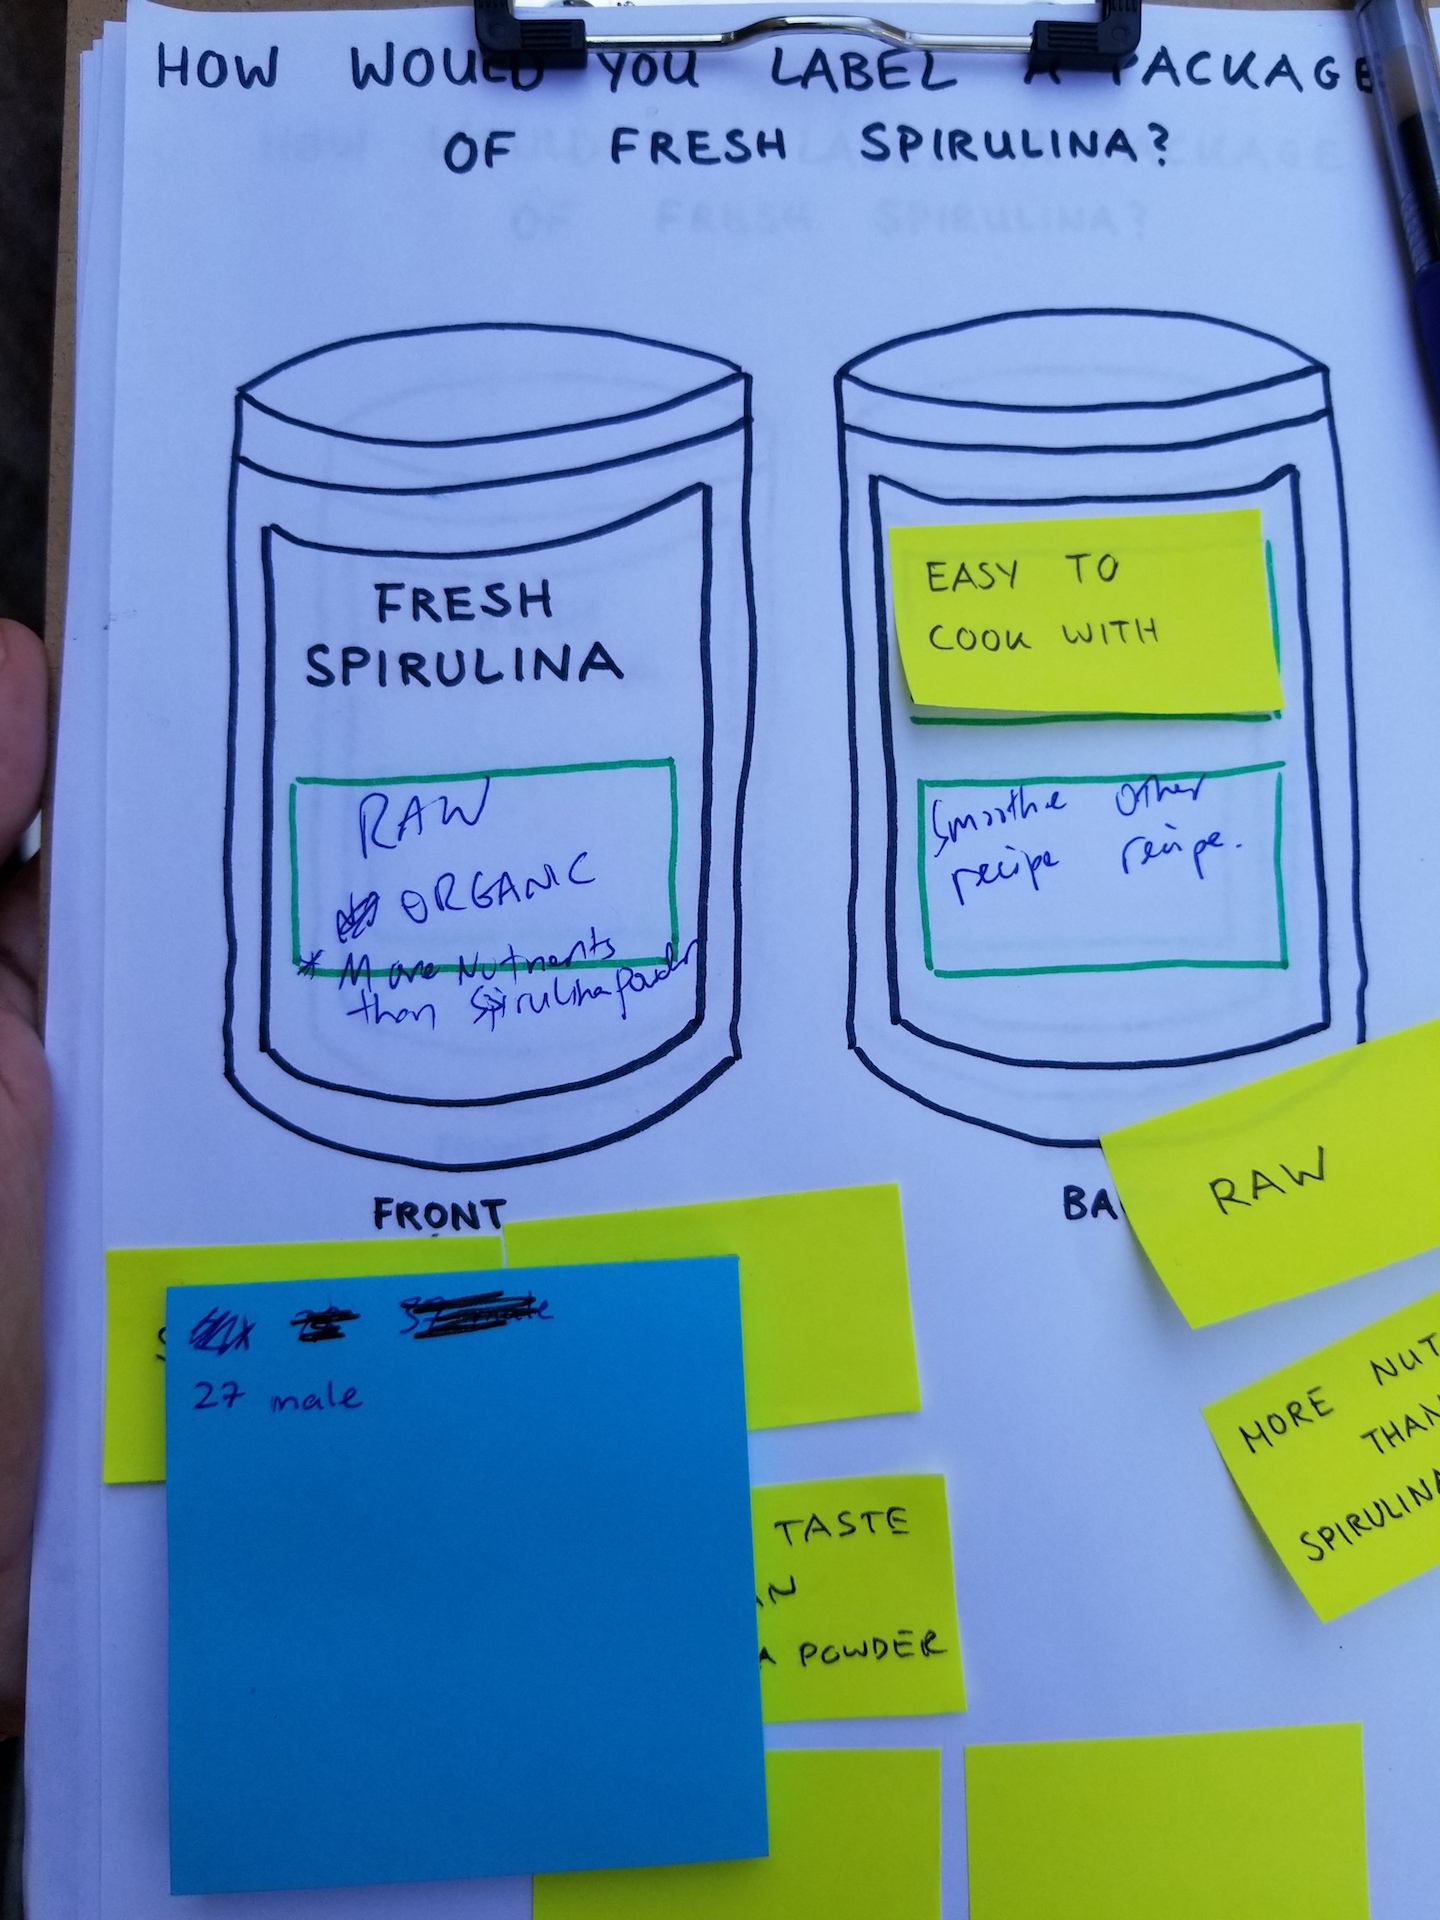 HOW WOULD YOU LABEL A PACKAGE
OF FRESH SPIRULINA?
FRESH
SPIRULINA
RAW
ORGANIC
* More Nutrients
than Spirulina Powder
FRONT
EASY TO
COOK WITH
Smoothie Other
recipe recipe.
BA
RAW
MORE NUT
THAN
SPIRULINA
27 male
TASTE
POWDER